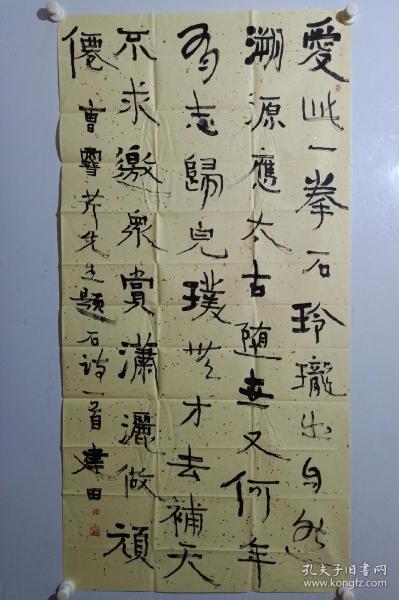 愛此一拳石玲瓏出自然
溯源應太古随世又何年
有志歸完璞無才去補天
不求邀衆賞瀟灑做頑
僊 曹雪芹先生題石詩一首 建田
孔夫子旧书网
www.kongfz.com